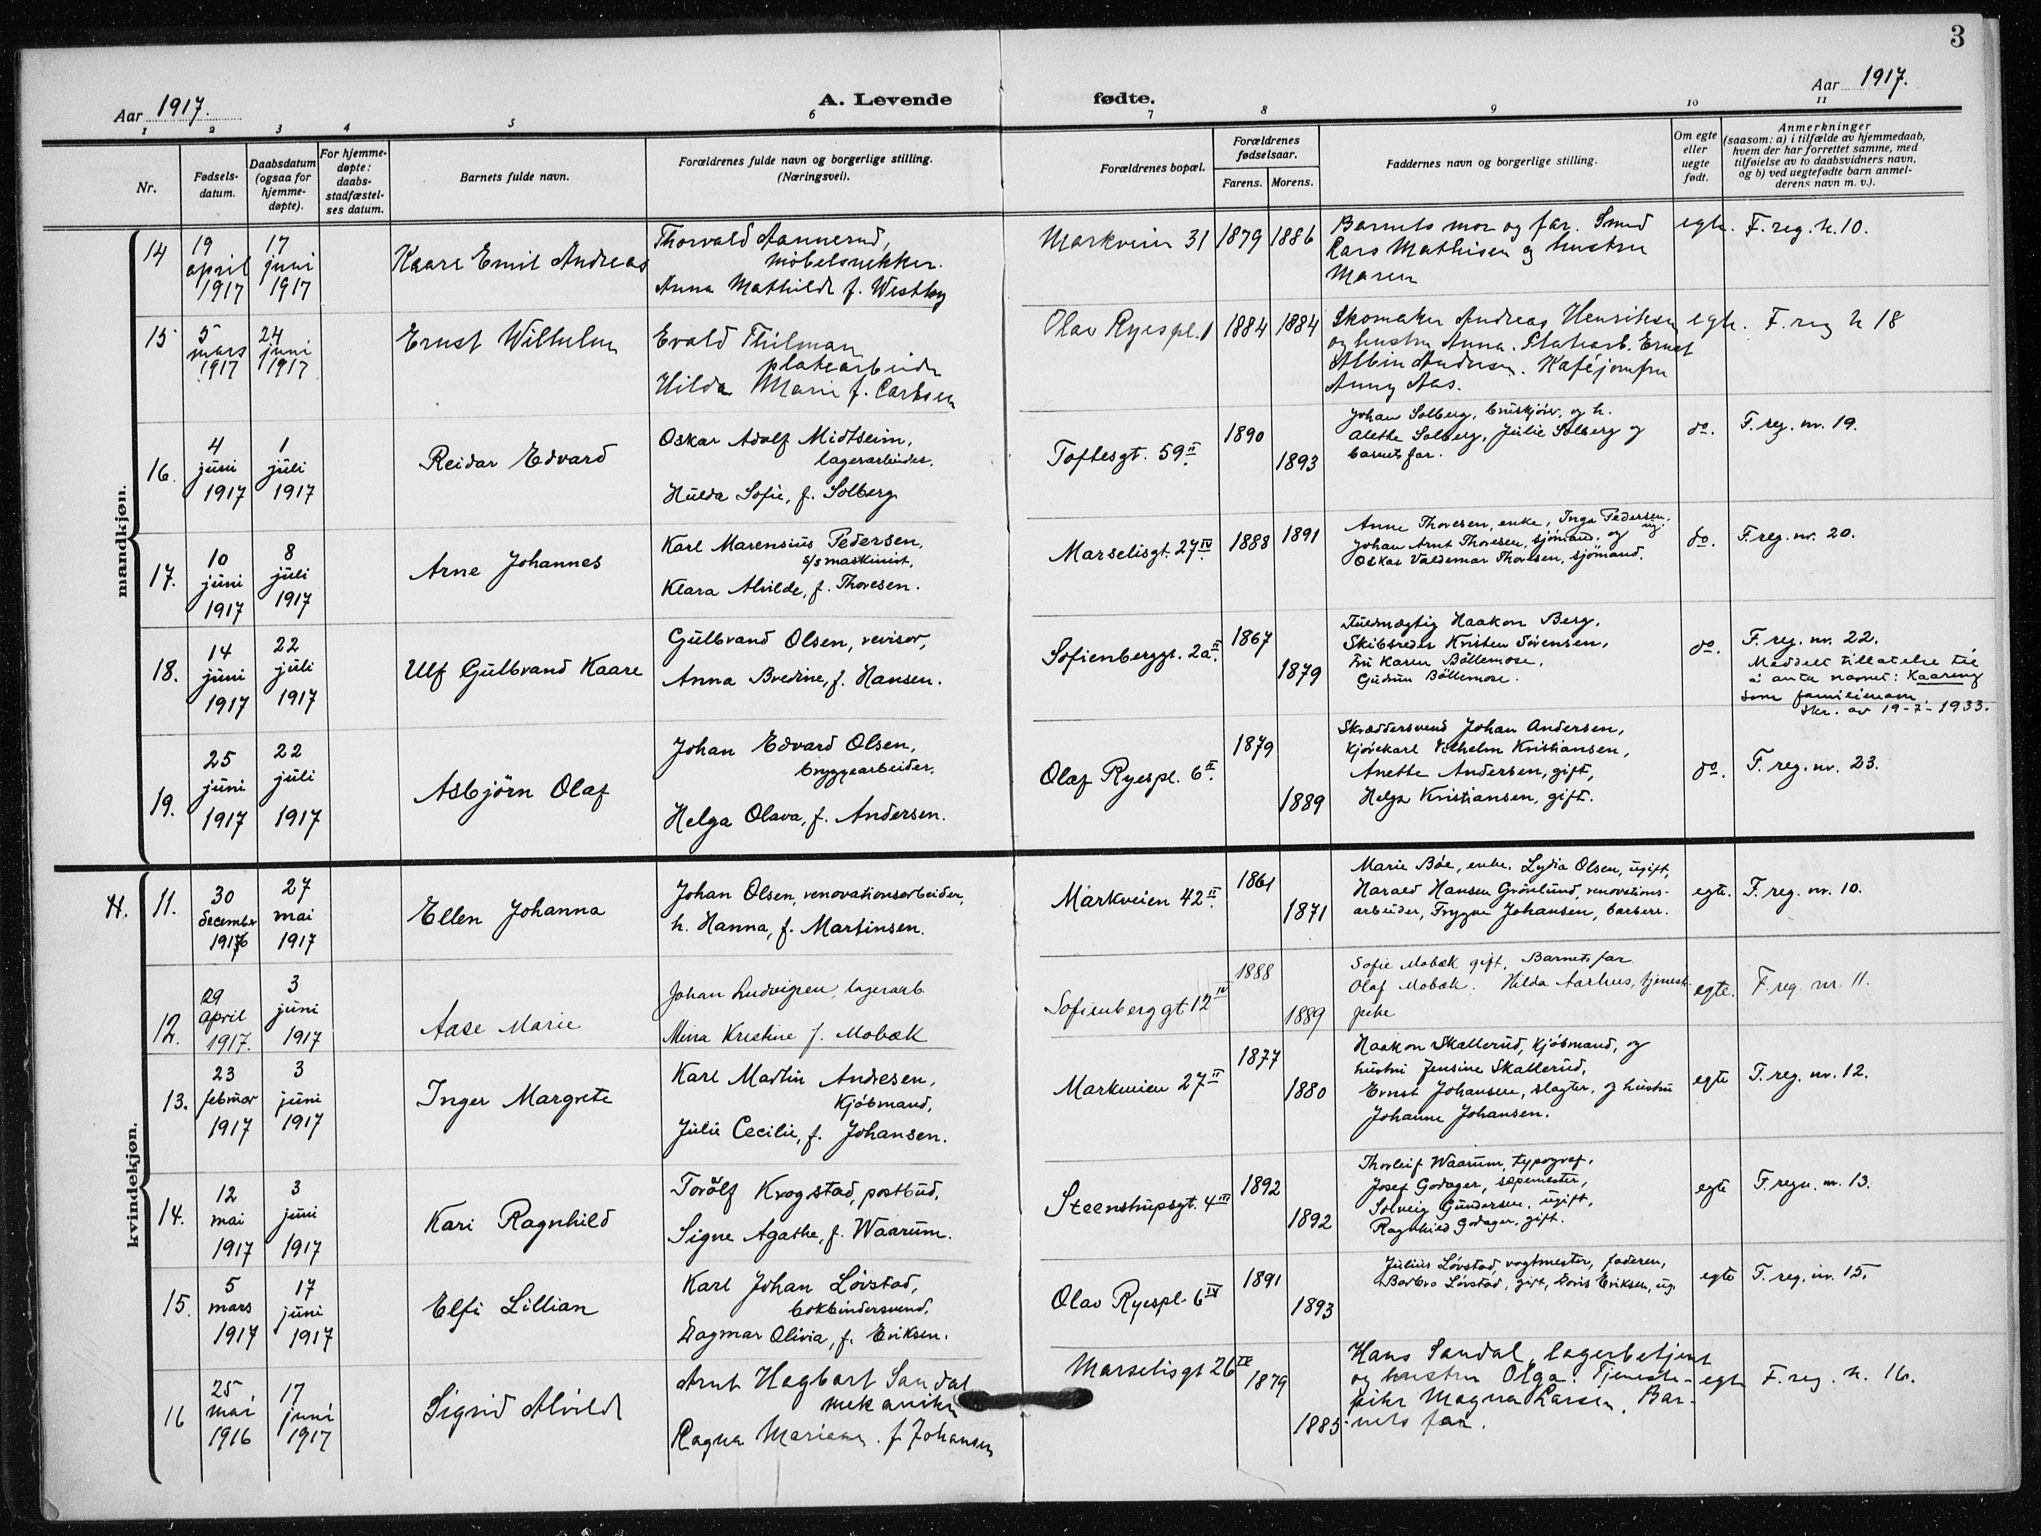 3
Aar 1917. A. Levende fødte. Aar 1917.
1 2 3 4 5 6 7 8 9 10 11
Nr.
Fødsels-
datum.
Daabsdatum
(ogsaa for
hjemme-
døpte).
For hjemme-
døpte:
daabs-
stadfæstel-
ses datum.
Barnets fulde navn.
Forældrenes fulde navn og borgerlige stilling.
(Næringsvei).
Forældrenes bopæl.
Forældrenes
fødselsaar.
Farens. Morens.
Faddernes navn og borgerlige stilling.
Om egte
eller
uegte
født.
Anmerkninger
(saasom: a) i tilfælde av hjemmedaab,
hvem der har forrettet samme, med
tilføielse av to daabsvidners navn,
og b) ved uegtefødte barn anmel-
derens navn m. v.).
mandkjøn.
14
19
april
1917
17
juni
1917
Kaare Emil Andreas
Thorvald Aannerud,
møbelsnekker.
Anna Mathilde f. Westby
Markveien 31
1879 1886
Barnets mor og far. Smed
Lars Mathisen og hustru
Maren
egte.
F. reg. n. 10.
15
5
mars
1917
24
juni
1917
Ernst Wilhelm
Evald Thilman
platearbeider
Hilda Marie f. Carlsen
Olav Ryespl. 1
1884 1884
Skomaker Andreas Henriksen
og hustru Anna. Platearb. Ernst
Albin Andersen. Kaféjomfru
Anny Aas.
egte.
F. reg n 18
16.
4
juni
1917
1
juli
1917
Reidar Edvard
Oskar Adolf Midtseim,
lagerarbeider.
Hulda Sofie, f. Solberg
Toftesgt. 59 II.
1890
1893
Johan Solberg, bruskjör., og h.
Alethe Solberg, Julie Solberg og
barnets far.
do.
F. reg. nr. 19.
17.
10
juni
1917
8
juli
1917
Arne Johannes
Karl Marensius Pedersen,
s/s maskinist,
Klara Alvilde, f. Thoresen.
Marselisgt. 27 IV.
1888 1891
Anne Thoresen, enke, Inga Pedersen, ug.
Johan Arnt Thoresen, sjömand, og
Oskar Valdemar Thoresen, sjömand.
do.
F. reg. nr. 20.
18.
14
juni
1917
22
juli
1917
Ulf Gulbrand Kaare
Gulbrand Olsen, revisor,
Anna Bredine, f. Hansen.
Sofienberggt. 2a II.
1867
1879
Fuldmægtig Haakon Berg,
Skibsreder Kristen Sörensen,
Fru Karen Böllemose,
Gudrun Böllemose.
do.
F. reg. nr. 22.
Meddelt tillatelse til
å anta navnet: Kaareng
som familienavn
Skr. av 19-7-1933.
19.
25
juni
1917
22
juli
1917
Asbjörn Olaf
Johan Edvard Olsen,
bryggearbeider,
Helga Olava, f. Andersen.
Olaf Ryespl. 6 II.
1879
1889
Skræddersvend Johan Andersen,
Kjörekarl Vilhelm Kristiansen,
Anette Andersen, gift,
Helga Kristiansen, gift.
do.
F. reg. nr. 23.
kvindekjøn.
H. 11.
30
december
1916
27
mai
1917
Ellen Johanna
Johan Olsen, renovationsarbeider,
h. Hanna, f. Martinsen.
Markveien 42 II.
1861
1871
Marie Bøe, enke, Lydia Olsen, ugift,
Harald Hansen Grönlund, renovations-
arbeider, Trygve Johansen, barberer.
egte.
F. reg. nr. 10.
12.
29
april
1917.
3
juni
1917
Aase Marie
Johan Ludvigsen, lagerarb.
Mina Kristine f. Mobæk
Sofienberggt 12 IV
1888
1889
Sofie Mobæk gift. Barnets far
Olaf Mobæk. Hilda Aarhus, tjeneste-
pike
egte.
F. reg. nr. 11.
13.
23
februar
1917
3
juni
1917
Inger Margrete
Karl Martin Andresen,
Kjöbmand,
Julie Cecilie, f. Johansen.
Markveien 27 II
1877
1880
Haakon Skallerud, Kjöbmand, og
hustru Jensine Skallerud,
Ernst Johansen, slagter, og hustru
Johanne Johansen.
egte
F. reg. nr. 12.
14.
12
mai
1917
3
juni
1917
Kari Ragnhild
Torolf Krogstad, postbud,
Signe Agathe, f. Waarum.
Steenstrupsgt. 4 III
1892
1892
Thorleif Waarum, typograf,
Josef Godager, sæpemester,
Solveig Gundersen, ugift,
Ragnhild Godager, gift.
egte
F. regn. nr. 13.
15.
5
mars
1917
17
juni
1917
Elfi Lillian
Karl Johan Lövstad,
bokbindersvend,
Dagmar Olivia, f. Eriksen.
Olav Ryespl. 6 IV
1891
1893
Julius Lövstad, vogtmester, faderen,
Barbro Lövstad, gift, Doris Eriksen, ug.
egte
F. reg. nr. 15.
16
25
mai
1916
17
juni
1917
Sigrid Alvilde
Arnt Hagbart Sandal
mekaniker
Ragna Mariane f. Johansen
Marselisgt 26 IV
1879
1885
Hans Sandal, lagerbetjent
og hustru Olga. Tjeneste-
pike Magna Larsen. Bar-
nets far.
egte
F. reg. n. 16.